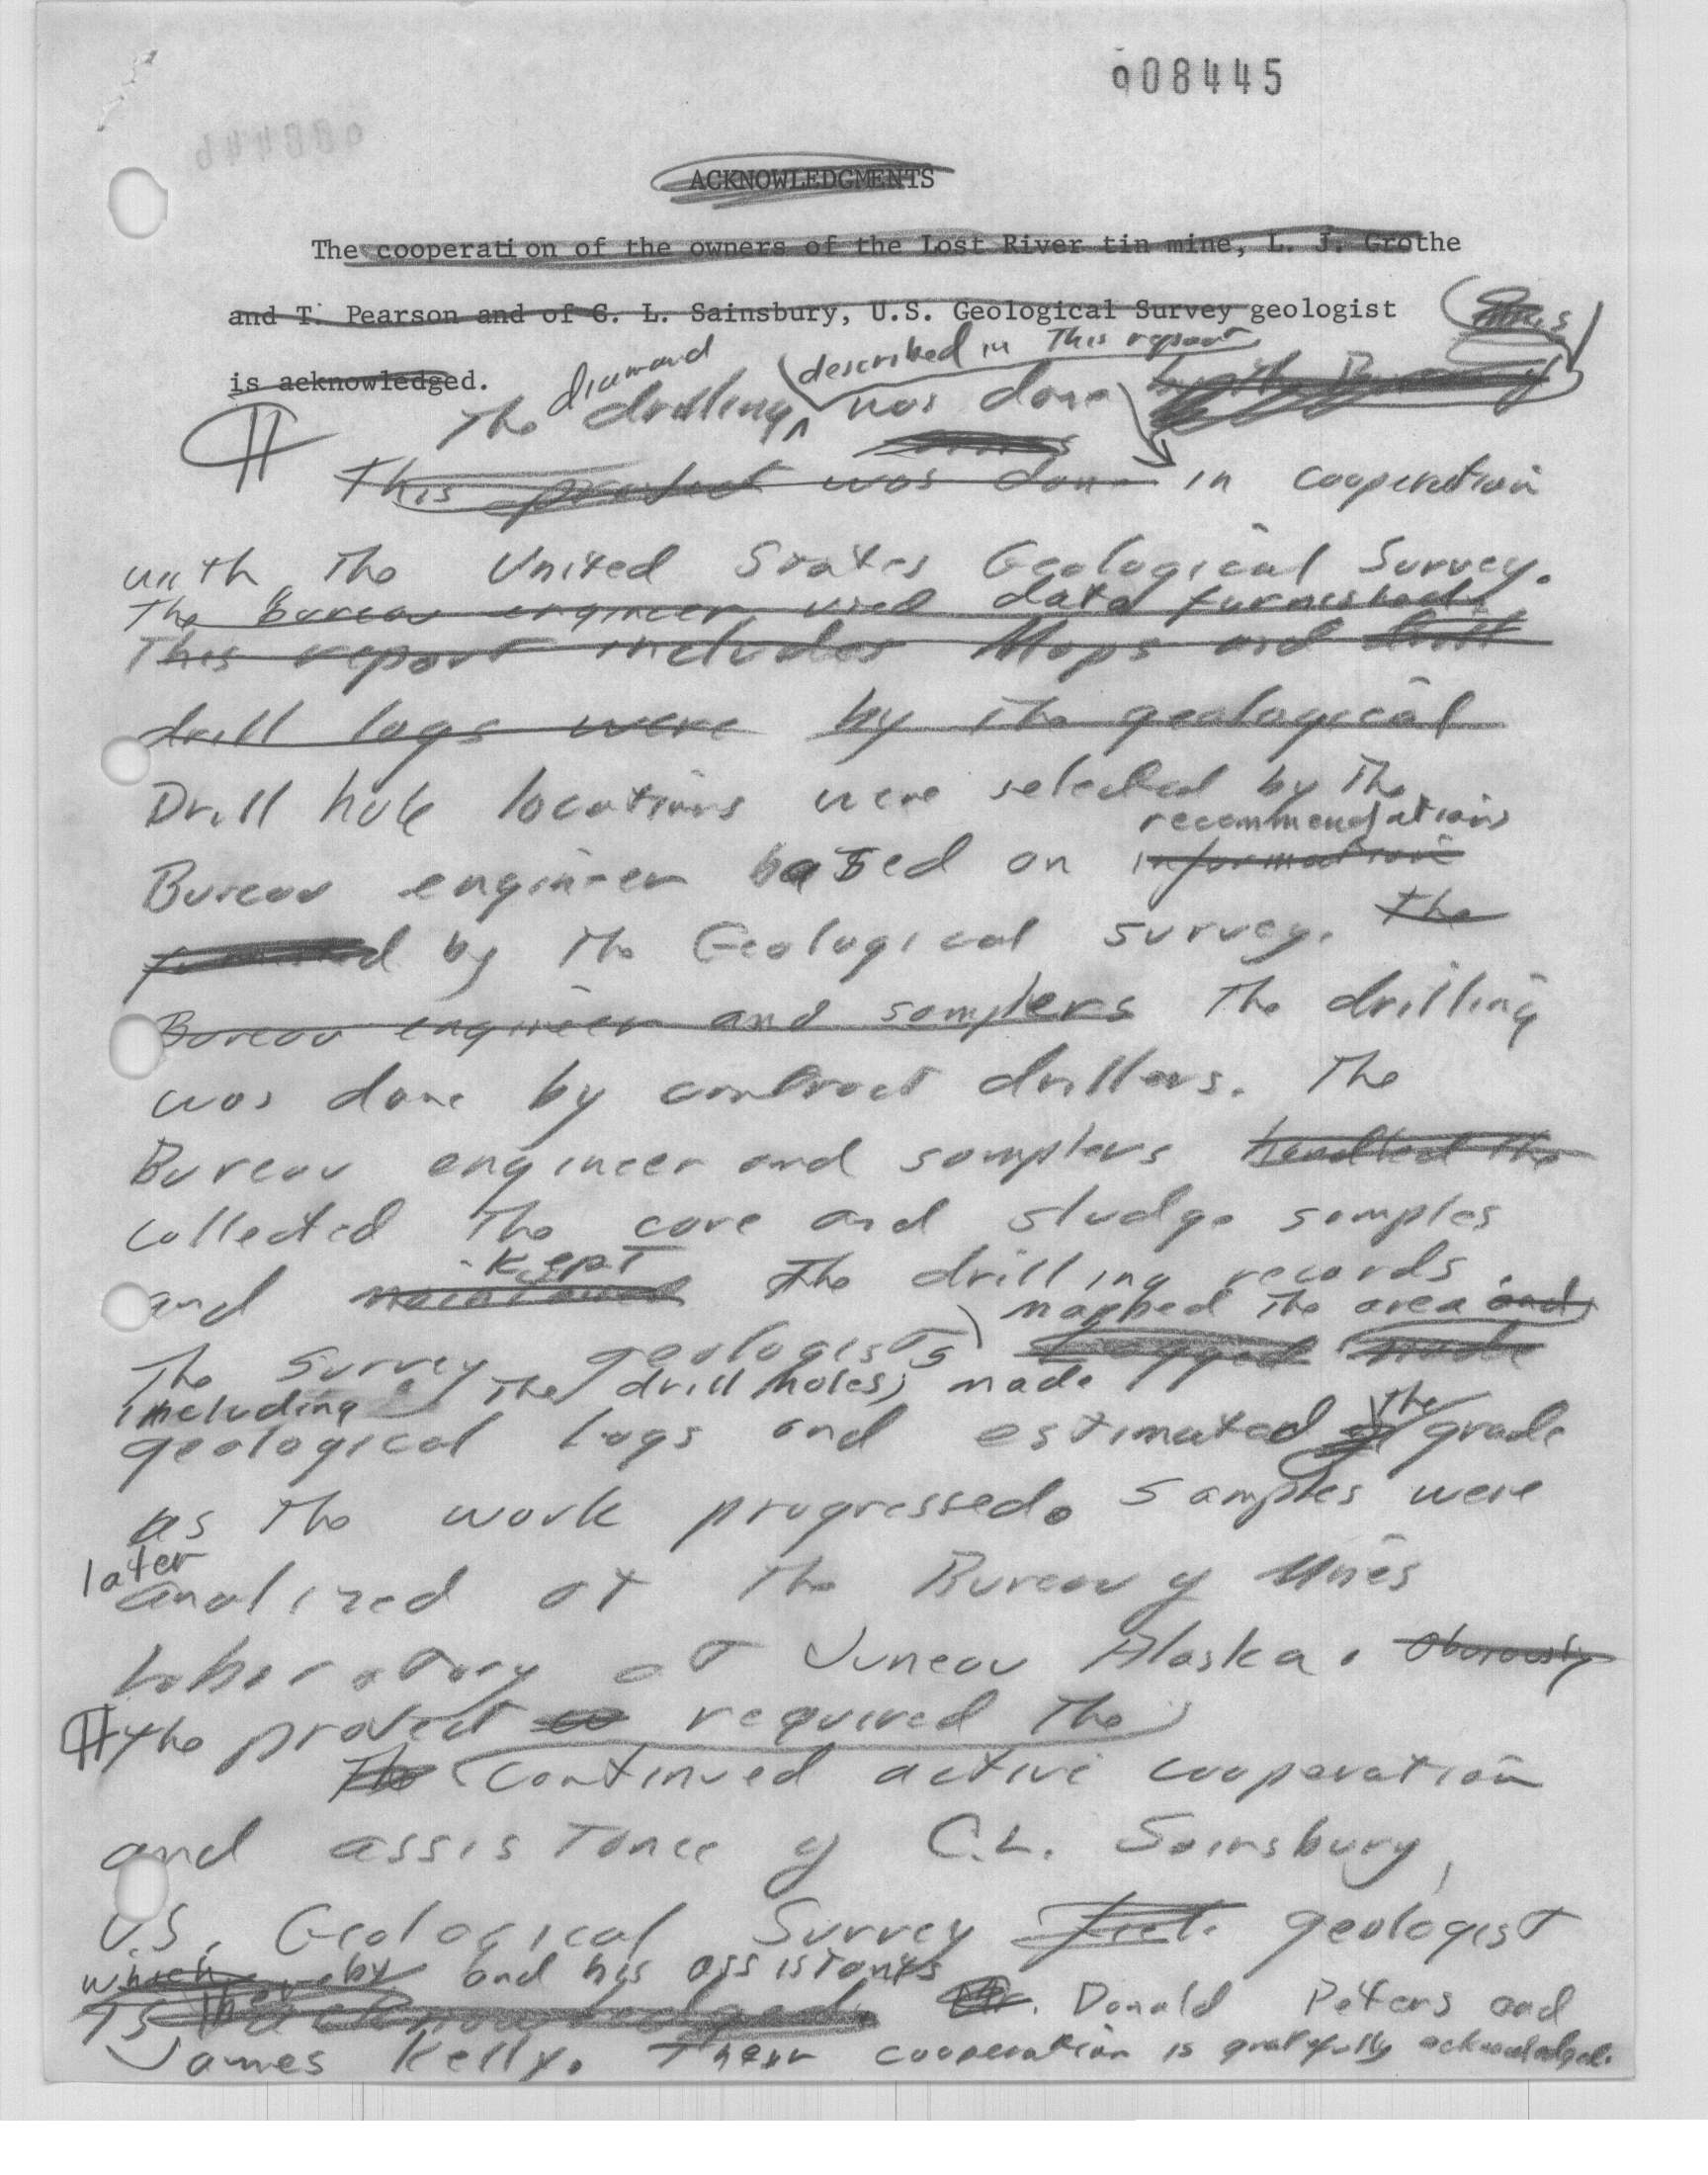 908445
ACKNOWLEDGMENTS
The cooperation of the owners of the Lost River tin mine, L. J. Grothe
and T. Pearson and of C. L. Sainsbury, U.S. Geological Survey geologist
is acknowledged.
diamond described in This report
The drilling was done
This project was done in cooperation
with The United States Geological Survey.
The Bureau engineer used data furnished
This report includes Maps and drill
drill logs were by The geological
Drill hole locations were selected by The
recommendations
Bureau engineer based on information
by The Geological survey. The
Bureau engineer and samplers The drilling
was done by contract drillers. The
Bureau engineer and samplers handled the
collected The core and sludge samples
kept
and maintained The drilling records.
mapped The area and
The Survey geologists logged made
including The drill holes, made
the
geological logs and estimated grade
as The work progressed. Samples were
later
analized at The Bureau of Mines
Laboratory at Juneau Alaska. Obviously
¶ The project required The
The continued active cooperation
and assistance of C.L. Sainsbury,
U.S. Geological Survey geologist
which by and his assistants
is acknowledged. Mr. Donald Peters and
James Kelly. Their cooperation is gratefully acknowledged.